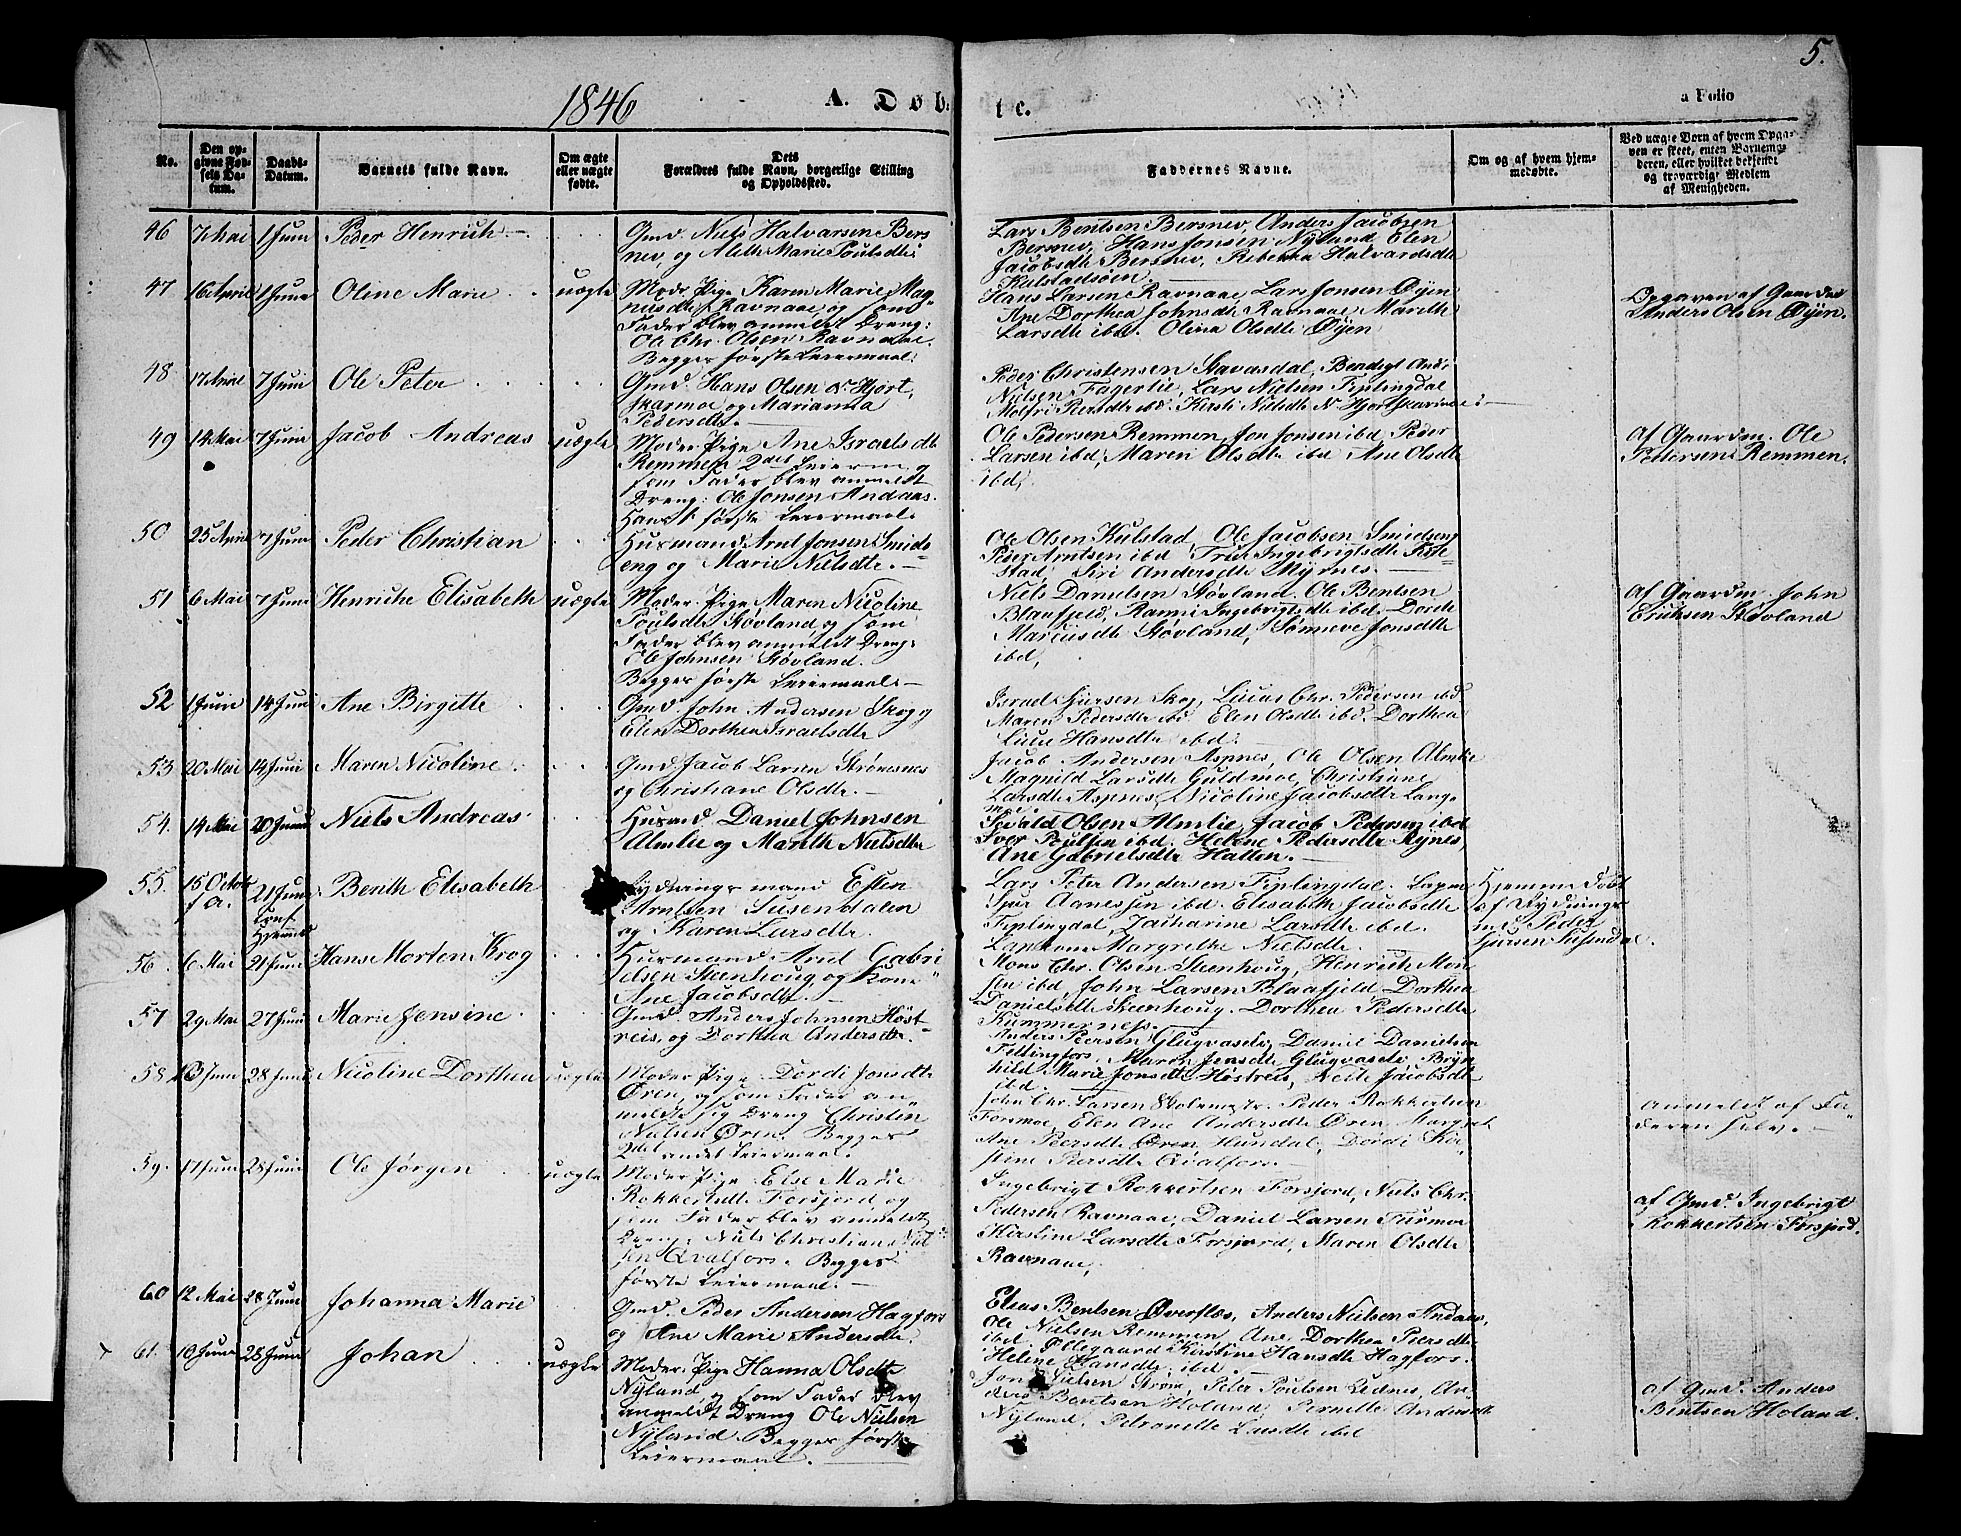 5.
1846
A. Døb
te.
a Folio
No.
Den op-
givne Fød-
sels Da-
tum.
Daabs-
Datum.
Barnets fulde Navn.
Om ægte
eller uægte
fødte.
Dets
Forældres fulde Navn, borgerlige Stilling
og Opholdssted.
Faddernes Navne.
Om og af hvem hjem-
medøbte.
Ved uægte Børn af hvem Opga-
ven er skeet, enten Barnemo-
deren, eller hvilket bekjendt
og troværdigt Medlem
af Menigheden.
46 7 Mai 1 Juni Peder Henrich
Gmd. Niels Halvarsen Bers
nev, og Aleth Marie Poulsdtr
Lars Bentsen Bersnev, Anders Jacobsen
Bersnev, Hans Jonsen Nyland Elen
Jacobsdtr Bersnev, Rebekka Halvardsdtr
Kulstadsøien
47 16 April 1 Juni Oline Marie uægte
Moder Pige Karen Marie Mag-
nusdtr Ravnaae, og som
Fader blev anmeldt Dreng:
Ole Chr. Olsen Ravnaae.
Begges første Leiermaal.
Hans Larsen Ravnaae, Lars Jonsen Øyen
Ane Dorthea Johnsdtr Ravnaae, Marith
Larsdtr ibd. Olina Olsdtr Øyen
Opgaven af Gaardm
Anders Olsen Øyen.
48 17 April 7 Juni Ole Peter
Gmd. Hans Olsen N. Hjort,
skarmoe og Marianna
Pedersdtr.
Peder Christensen Stavasdal, Bendigt And:
Nielsen Fagerlie, Lars Nielsen Tiplingdal
Molfri Peersdtr ibd. Kirsti Nielsdtr N. Hjortskarmoe
49 14 Mai 7 Juni Jacob Andreas uægte
Moder Pige Ane Israelsdtr
Remmen 2det Leierm. og
som Fader blev anmeldt
Dreng: Ole Jonsen Andaas.
Hans første Leiermaal.
Ole Pedersen Remmen, Jon Jonsen ibd Peder
Larsen ibd, Maren Olsdtr ibd Ane Olsdtr
ibd,
af Gaardm. Ole
Pettersen Remmen.
50 25 April 7 Juni Peder Christian
Husmand Arnt Jonsen Smids-
eng og Marie Nielsdtr.
Ole Olsen Kulstad, Ole Jacobsen Smidseng
Peder Arntsen ibd Trui Ingebrigtsdtr
stad, Siri Andersdtr Myrnes.
51 6 Mai 7 Juni Henriche Elisabeth uægte
Moder. Pige Maren Nicoline
Poulsdtr Støvland og som
Fader blev anmeldt Dreng:
Ole Johnsen Støvland.
Begges første Leiermaal
Niels Danielsen Støvland. Ole Bentsen
Blaafjeld, Ranni Ingebrigtsdtr ibd. Dorth
Marcusdtr Støvland, Sønneve Jonsdtr
ibd,
af Gaardm. John
Eriksen Støvland
52 1 Juni 14 Juni Ane Birgitte
Gmd. John Andersen Skog og
Elen Dorthea Israelsdtr
Israel Sjursen Skog, Lucas Chr. Pedersen ibd
Maren Pedersdtr ibd Elen Olsdtr ibd. Dorthea
Lucie Hansdtr ibd.
53 20 Mai 14 Juni Maren Nicoline
Gmd. Jacob Larsen Strømsnes
og Christiane Olsdtr.
Jacob Andersen Aspnes, Ole Olsen Almlie
Magnild Larsdtr Guldmoe, Christiane
Larsdtr Aspnes, Nicoline Jacobsdtr Lang-
moe
54. 14 Mai 20 Juni Niels Andreas
Husmd Daniel Johnsen
Almlie og Marith Nielsdtr
Sivald Olsen Almlie, Jacob Pedersen ibd
Iver Poulsen ibd. Helene Pedersdtr Rynes
Ane Gabrielsdtr Hatten.
55. 15 Octob
f. a. 21 Juni
Hjemmed Berith Elisabeth
Rydnings mand Esten
Arntsen Susendalen
og Karen Larsdtr.
Lars Peter Andersen Tiplingdal. Lapm
Sjur Agnessen ibd. Elisabeth Jacobsdtr
Tiplingdal, Zacharine Larsdtr ibd.
Lapkone Margrethe Nielsdtr.
Hjemme døbt
af Rydnings
md. Peder
Sjursen Susendal.
56 6 Mai 21 Juni Hans Morten Krog
Husmand Arnt Gabri
elsen Steenhoug, og Kone
Ane Jacobsdtr.
Mons Chr. Olsen Steenhoug, Henrich Mon
sen ibd, John Larsen Blaafjeld Dorthea
Danielsdtr Steenhoug. Dorthea Pedersdtr
Kummernes.
57 29 Mai 27 Juni Marie Jensine
Gmd. Anders Johnsen Høst-
reis, og Dorthea Andersdtr.
Anders Peersen Glugvaselv, Daniel Danielsen
Fellingfors, Jensdtr Glugvaselv, Bryn
hild Marie Jonsdtr Høstreis, Jacobsdtr
ibd.
58. 13 Juni 28 Juni Nicoline Dorthea uægte
Moder Pige Dordi Jonsdtr
Øren, og som Fader an-
meldte sig Dreng Christen
Nielsen Øren. Begges
2det andet Leiermaal.
John Chr. Larsen Holmestr. Peder Rokkertsen
Formoe, Elen Ane Andersdtr Øren, Margret
Ane Peersdtr Øren, Hundal, Dordi Ki-
stine Peersdtr Qvalfors.
Anmeldt af Fa-
deren selv.
59. 17 Juni 28 Juni Ole Jørgen uægte
Moder Pige Else Marie
Rokkertsdtr Forsjord, og
som Fader blev anmeldt
Dreng Niels Christian Niel
sen Qvalfors. Begges
første Leiermaal.
Ingebrigt Rokkertsen Forsjord, Niels Chr.
Pedersen Ravnaae, Daniel Larsen Furmoe
Kirstine Larsdtr Forsjord, Maren Olsdtr
Ravnaae,
af Gmd. Ingebrigt
Rokkertsen Forsjord.
60 12 Mai 28 Juni Johanna Marie
Gmd. Peder Andersen Hagfors
og Ane Marie Andersdtr,
Elias Bentsen Øverflos, Anders Nielsen Andaas,
Ole Nielsen Remmen, Ane Dorthea Peersdtr
ibd Ollegaard Kirstine Hansdtr Hagfors.
Helene Hansdtr. ibd.
61. 10 Juni 28 Juni Johan uægte
Moder. Pige Hanna Olsdtr
Nyland, og som Fader blev
anmeldt Dreng Ole Nielsen
Nyland. Begges første
Leiermaal.
Jon Nielsen Strøm, Peter Poulsen Ludnes, An-
ders Bentsen Holand, Pernelle Andersdtr
Nyland, Petronelle Larsdtr ibd
af Gmd. Anders
Bentsen Holand.